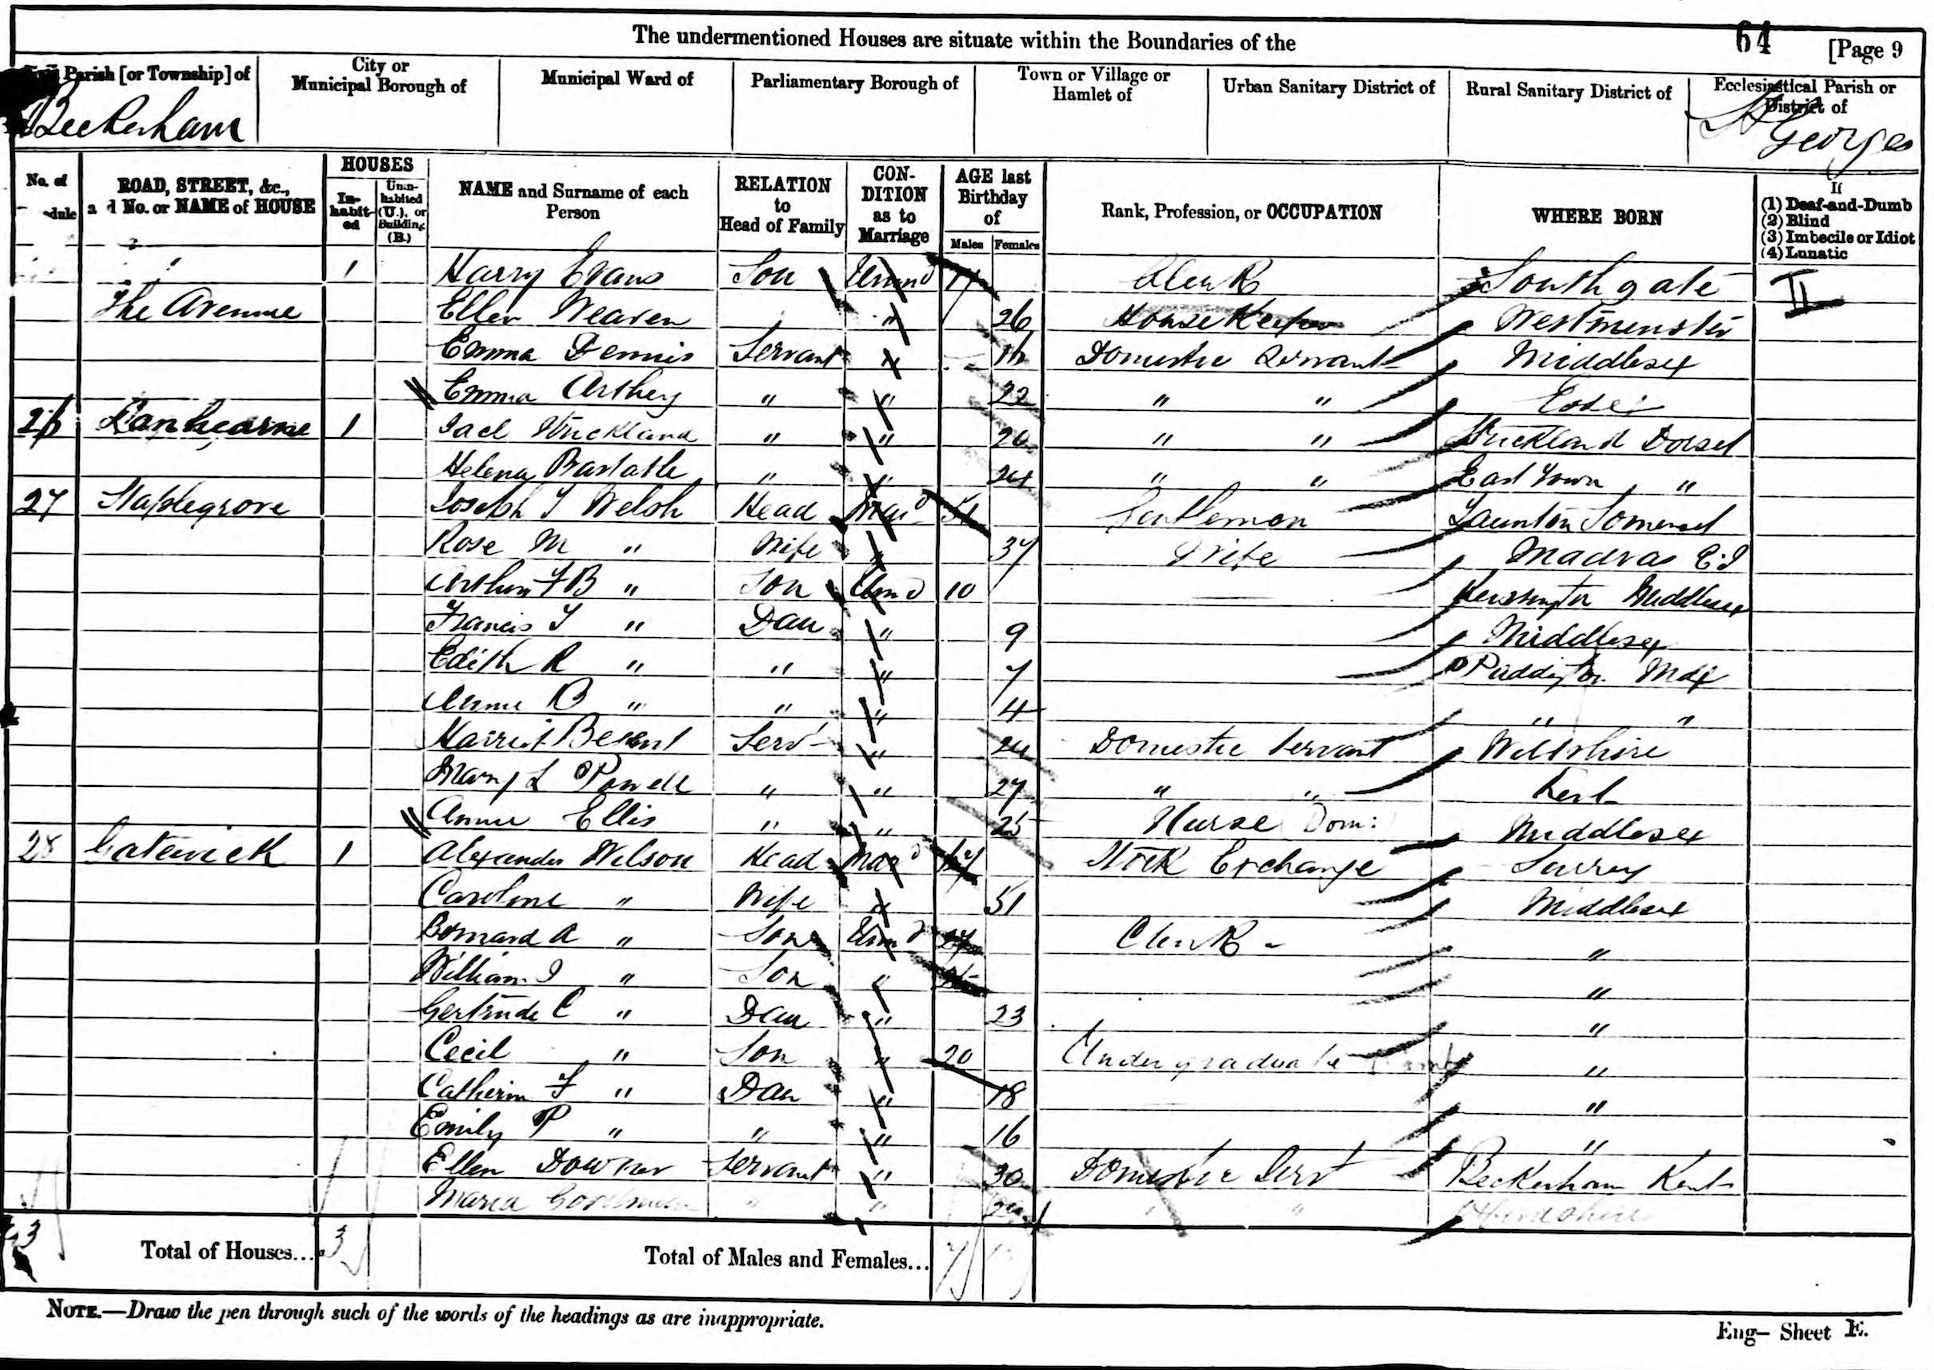 The undermentioned Houses are situate within the Boundaries of the
64
[Page 9
Parish [or Township] of
City or Municipal Borough of
Municipal Ward of
Parliamentary Borough of
Town or Village or Hamlet of
Urban Sanitary District of
Rural Sanitary District of
Ecclesiastical Parish or District of
Beckenham
St Georges
No. of
ROAD, STREET, &c., and No. or NAME of HOUSE
HOUSES
In-habit-ed
Unin-habited (U.), or Building (B.)
NAME and Surname of each Person
RELATION to Head of Family
CON-DITION as to Marriage
AGE last Birthday of
Males
Females
Rank, Profession, or OCCUPATION
WHERE BORN
If
(1) Deaf-and-Dumb
(2) Blind
(3) Imbecile or Idiot
(4) Lunatic
1 Harry Evans Son Unmd Clerk Southgate II
The Avenue Ellen Weaver " 26 House Keeper Westminster
Emma Dennis Servant 16 Domestic Servant Middlesex
Emma Arthey " " 22 " "
26 Lanhearne 1 Strickland " " 26 " " Dorset
Helena Bastable " 24 " " East Town "
27 Staplegrove Joseph T Welsh Head Mard 51 Gentleman Taunton Somerset
Rose M " Wife " 37 Wife Madras E.I
Arthur F B " Son Unmd 10 Kensington Middlesex
Francis T " Dau " 9 Middlesex
Edith R " " " 7 Paddington Mdx
Annie B " " " 4 " "
Harriet Besent Serv " 24 Domestic Servant Wiltshire
Mary L Powell " " 27 " " Kent
Annie Ellis " " 25 Nurse Dom: Middlesex
28 Gatewick 1 Alexander Wilson Head Mard Stock Exchange Surrey
Caroline " Wife " 51 Middlesex
Bernard A " Son Unmd Clerk "
William " Son " "
Gertrude C " Dau " 23 "
Cecil " Son " 20 Undergraduate "
Catherine F " Dau " 18 "
Emily P " " " 16 "
Ellen Downer Servant " 30 Domestic Servt Beckenham Kent
Maria " " " "
Total of Houses... 3
Total of Males and Females...
NOTE.—Draw the pen through such of the words of the headings as are inappropriate.
Eng— Sheet E.